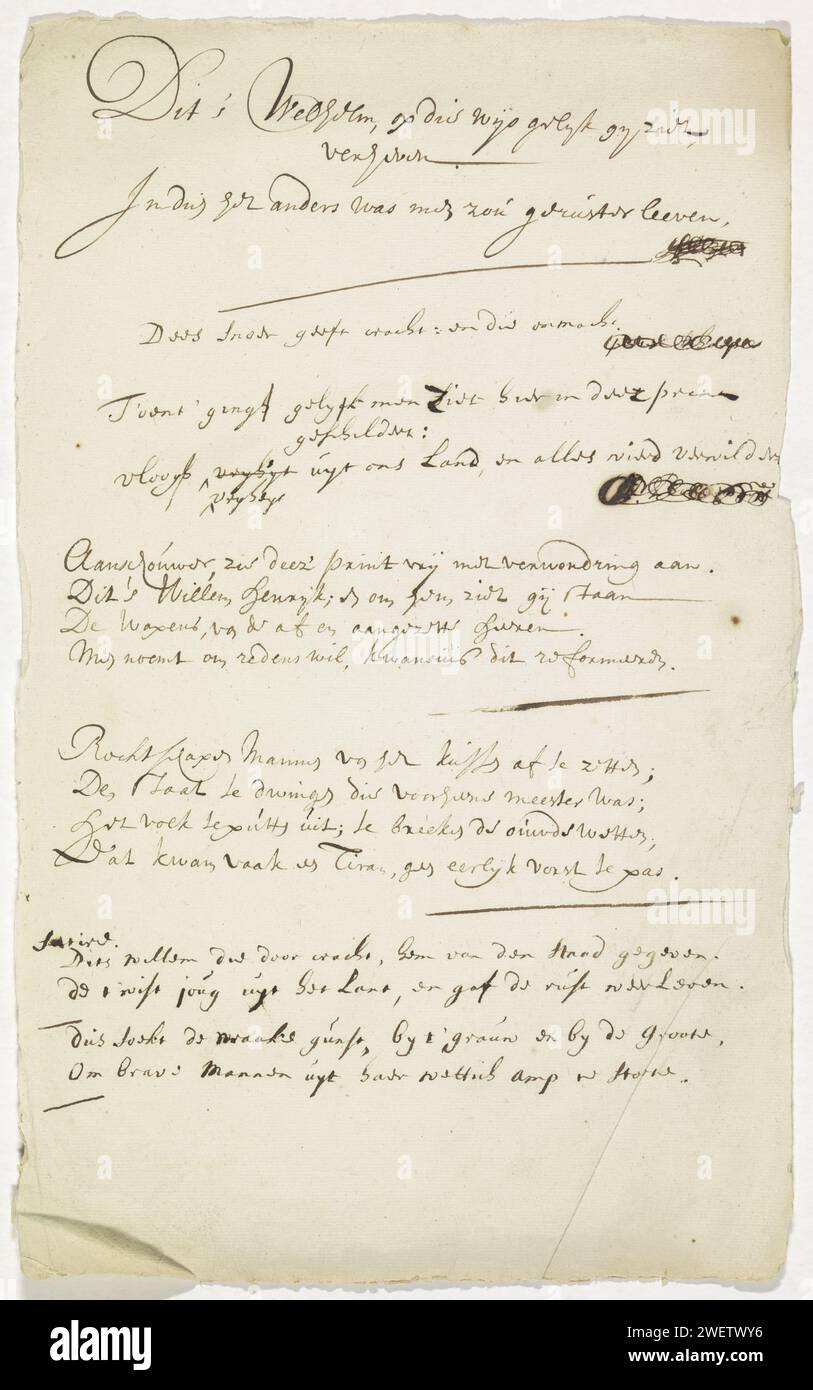 Dit's Welhelm, op die wijs gelyk gy ziet,
verheven
Indien het anders was men zou geruster leeven,
Dees snoer geeft cracht: en die onmacht.
T'oent' gingh gelyk men ziet hier in deez prent
geschildert:
vloogh uyt ons Land, en alles wierd verwildert
Aanschouwer, zie deez' print vrij met verwondring aan.
Dit's Willem Henrijk; en om hem ziet gij staan
De Wapens, van de af en aangezette Heeren.
Men noemt om redens wil, kwansuis dit reformeeren.
Rechtschapen Mannen van het kussen af te zetten;
Den Staat te dwingen die voorheene meester was;
Het volk te putten uit; te breeken de oude wetten;
Dat kwam vaak een Tiran, geen eerlyk vorst te pas.
Dits willem die door cracht, hem van den Staad gegeven.
de twist joug uyt het Lant, en gaf de rust weer Leven.
Dus soekt de wraake gunst, by t' grauw en by de Groote,
Om brave Mannen uyt haer wettich amp te stote.
alamy
alamy
Image ID: 2WETWY6
www.alamy.com